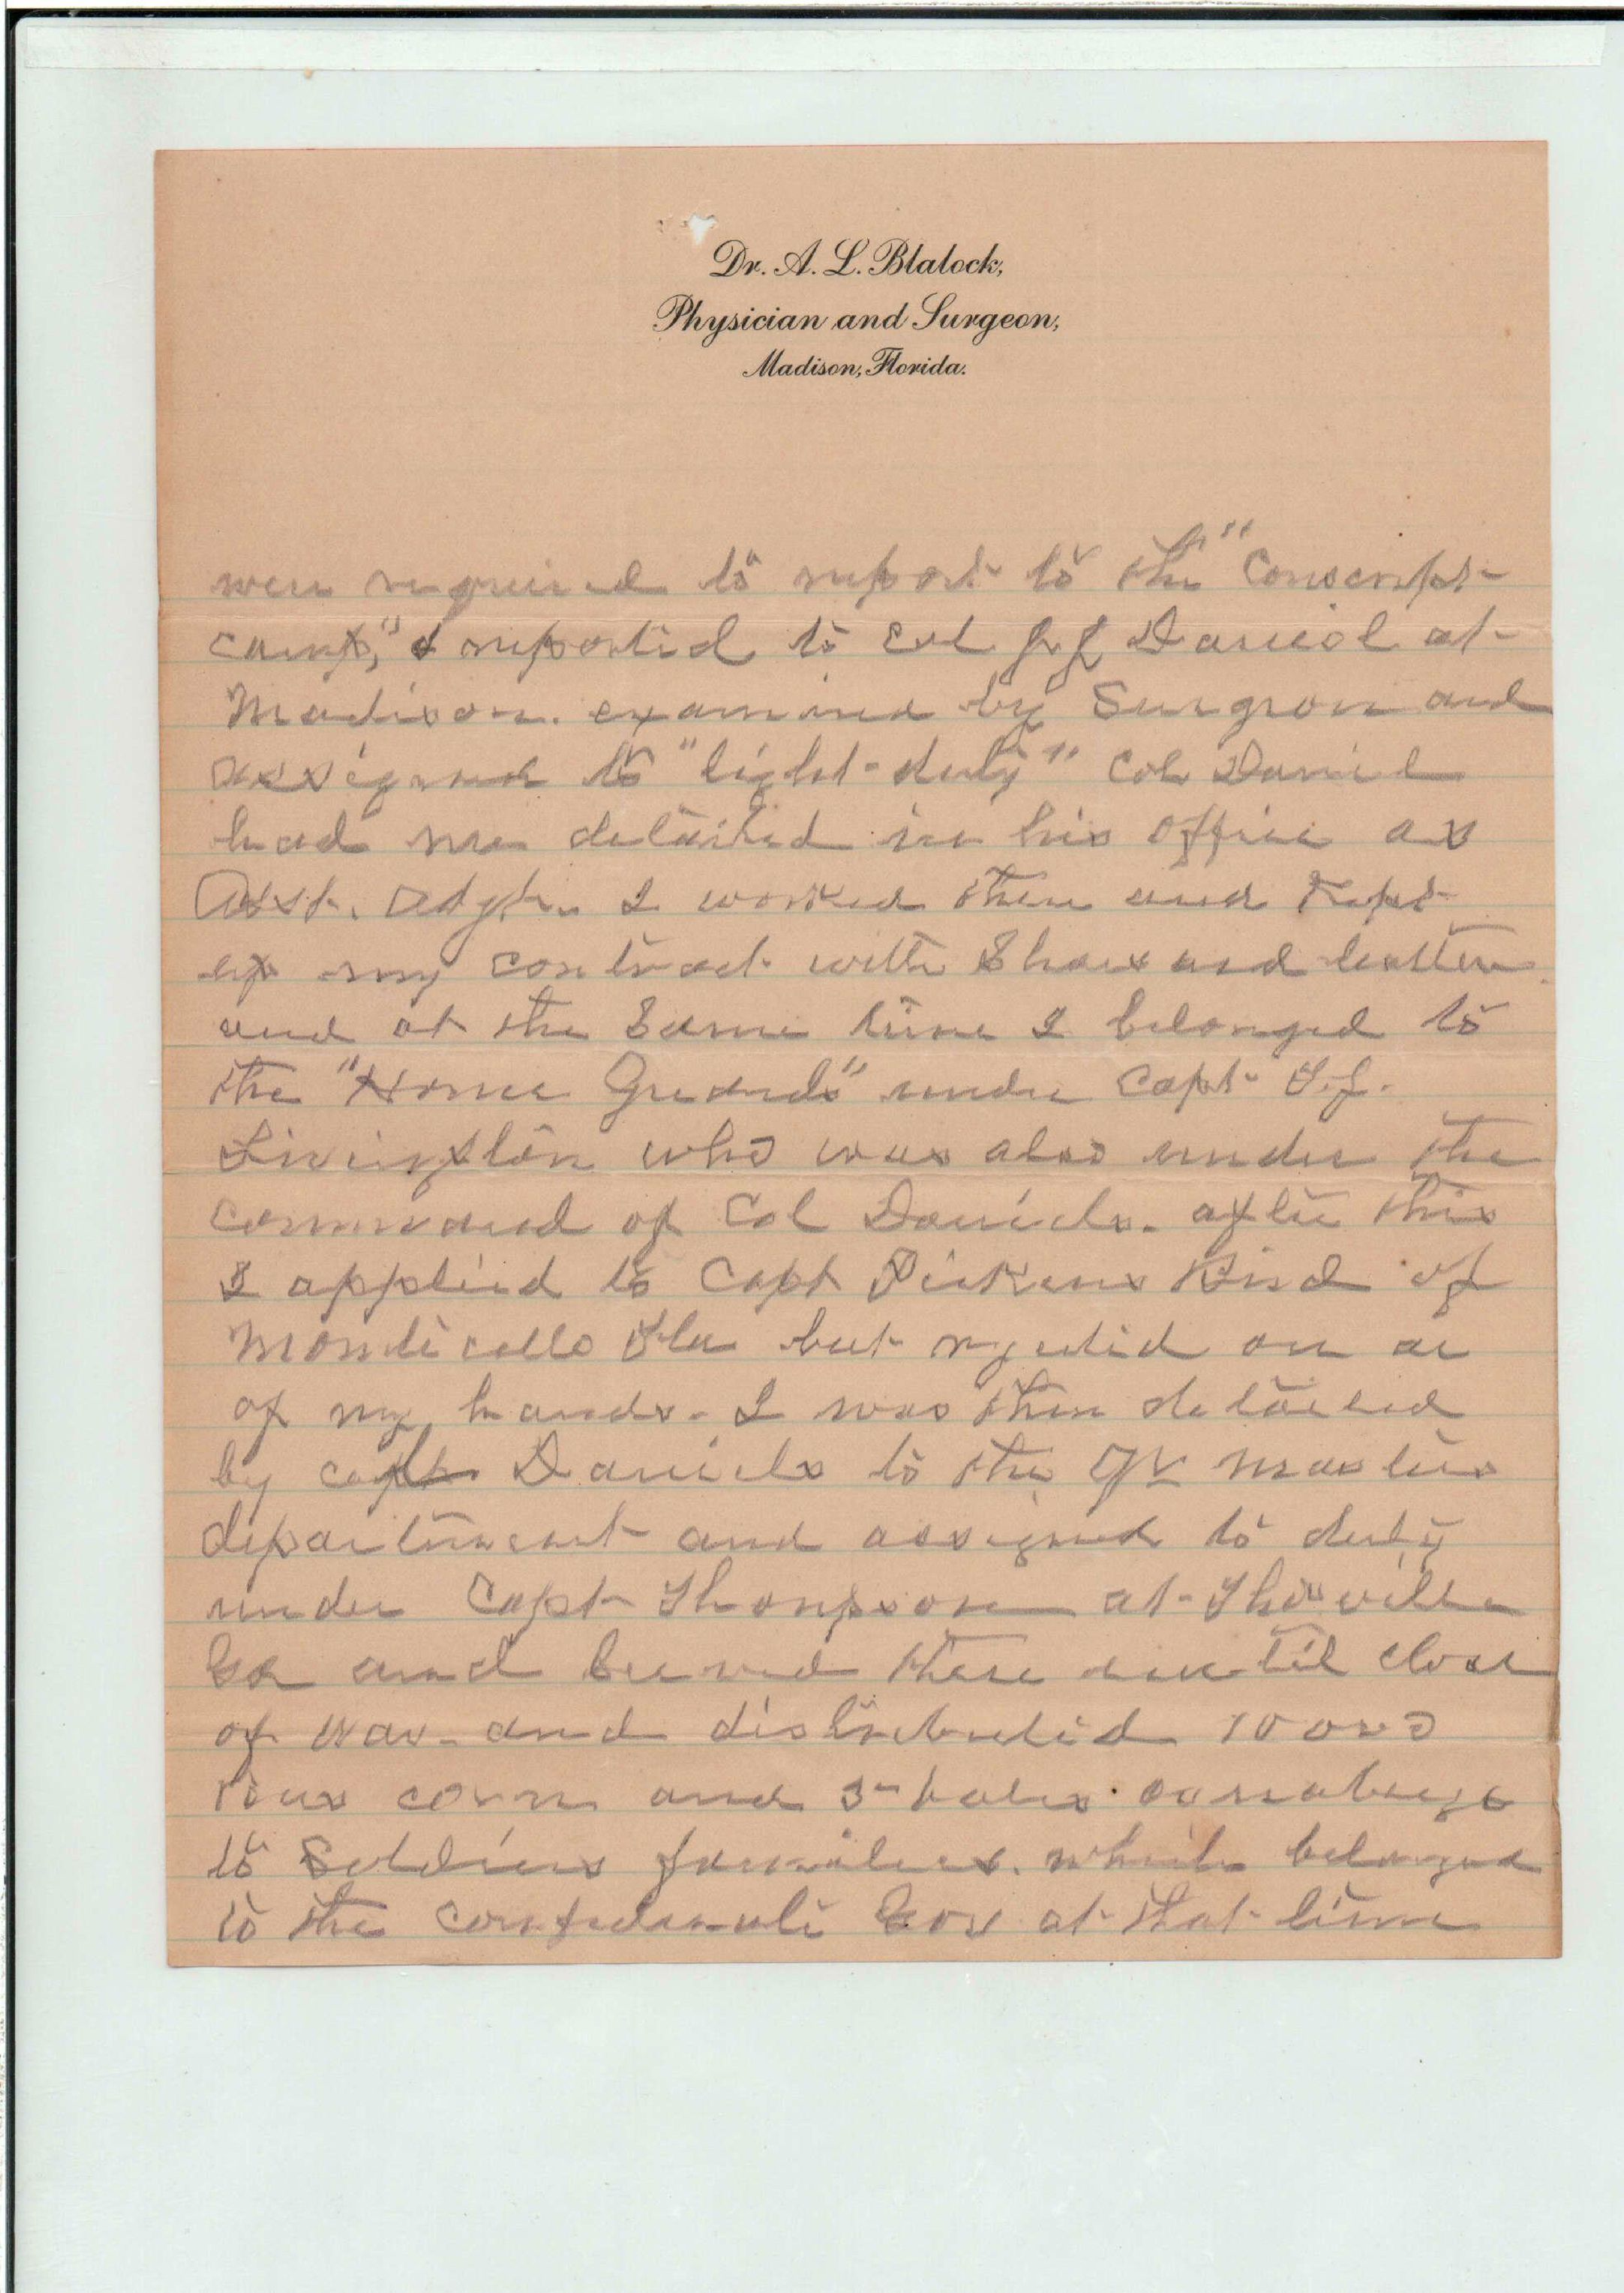 Dr. A. L. Blalock,
Physician and Surgeon,
Madison, Florida.
were required to report to the "Conscript
camp," I reported to Col J J Daniel at
Madison. examined by Surgeon and
assigned to "light-duty" Col Daniel
had me detailed in his office as
Asst. Adgt. I worked there and kept
up my contract with Shoes and leather
and at the Same time I belonged to
the "Home Guards" under Capt T. J.
Livingston who was also under the
command of Col Daniels. after this
I applied to Capt Pickens Bird of
Monticello Fla but rejected on ac
of my hands. I was then detailed
by capt Daniels to the Qr Masters
department and assigned to duty
under Capt Thompson at Thosville
Ga and Served there until close
of war and distributed 10000
bus corn and bales osnaburg
to Soldiers families. which belonged
to the Confederate Gov at that time